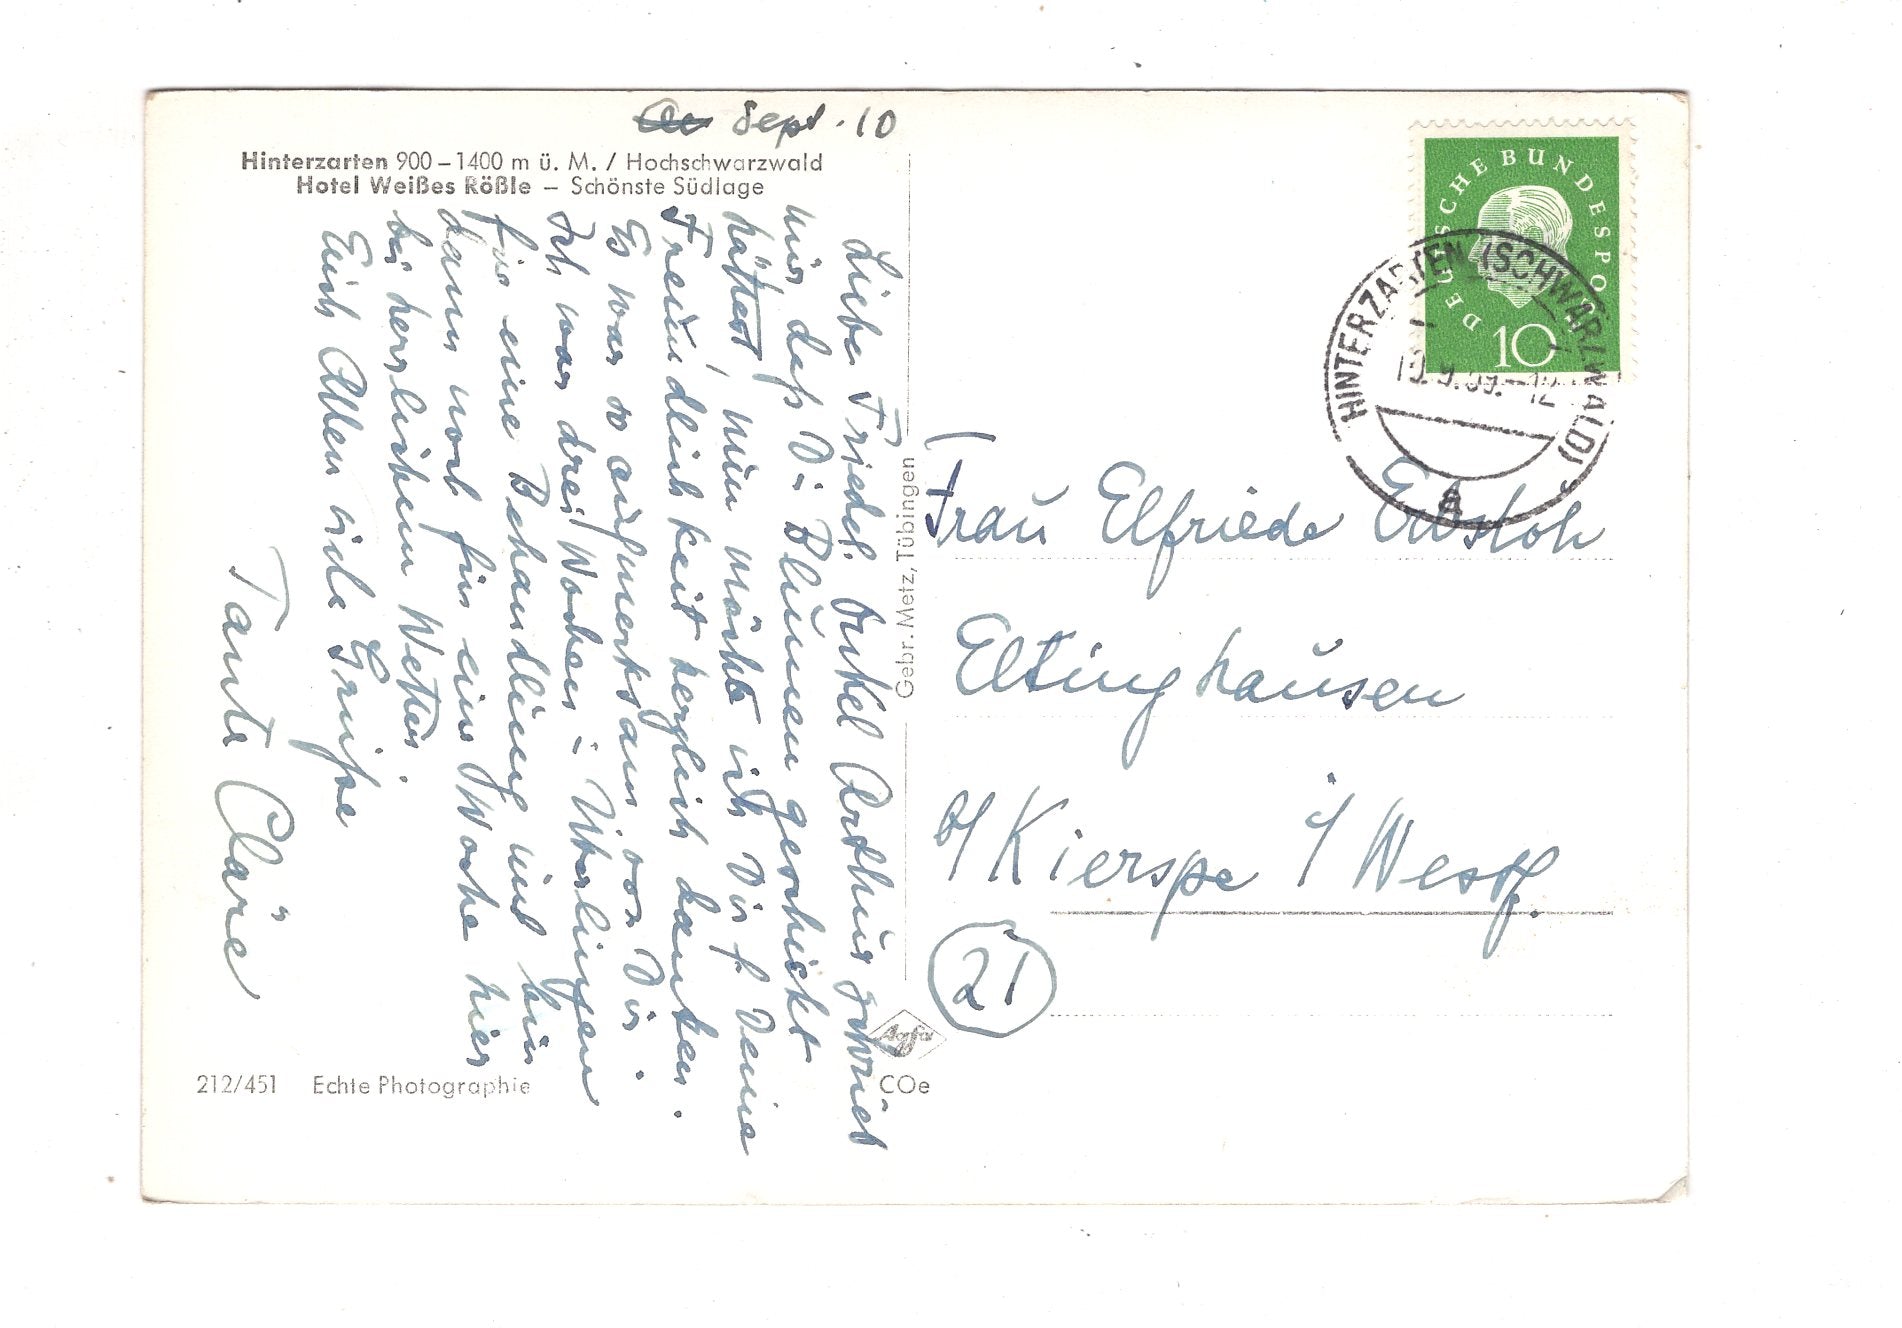 Sept. 10
Hinterzarten 900–1400 m ü. M. / Hochschwarzwald
Hotel Weißes Rößle – Schönste Südlage
Liebe Friedel. Onkel Arthur schrieb
mir daß Du Blumen geschickt
hättest, nun möchte ich Dir f Deine
Freundlichkeit herzlich danken.
Es war so aufmerksam von Dir.
Ich war drei Wochen i Überlingen
für eine Behandlung und bin
dann noch für eine Woche hier
bei herrlichem Wetter.
Euch Allen viele Grüße
Tante Claire
Gebr. Metz, Tübingen
212/451 Echte Photographie
Agfa
COe
DEUTSCHE BUNDESPOST
10
HINTERZARTEN (SCHWARZWALD)
10.9.59.-12
a
Frau Elfriede
Eltinghausen
b/ Kierspe i/ Westf.
21